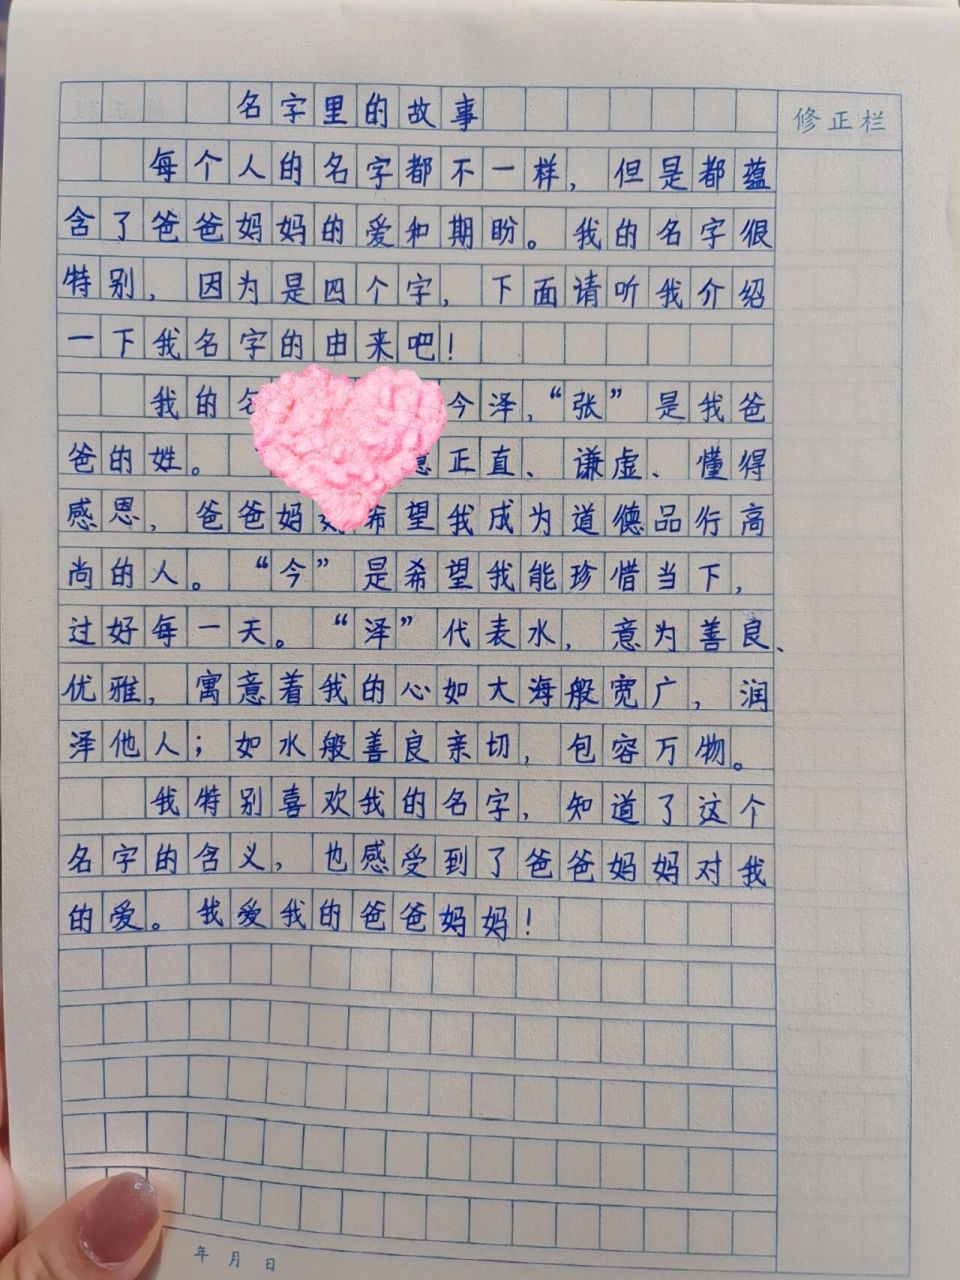 名字里的故事
修正栏
每个人的名字都不一样，但是都蕴
含了爸爸妈妈的爱和期盼。我的名字很
特别，因为是四个字，下面请听我介绍
一下我名字的由来吧！
我的名今泽，“张”是我爸
爸的姓。正直、谦虚、懂得
感恩，爸爸妈希望我成为道德品行高
尚的人。“今”是希望我能珍惜当下，
过好每一天。“泽”代表水，意为善良、
优雅，寓意着我的心如大海般宽广，润
泽他人；如水般善良亲切，包容万物。
我特别喜欢我的名字，知道了这个
名字的含义，也感受到了爸爸妈妈对我
的爱。我爱我的爸爸妈妈！
年 月 日